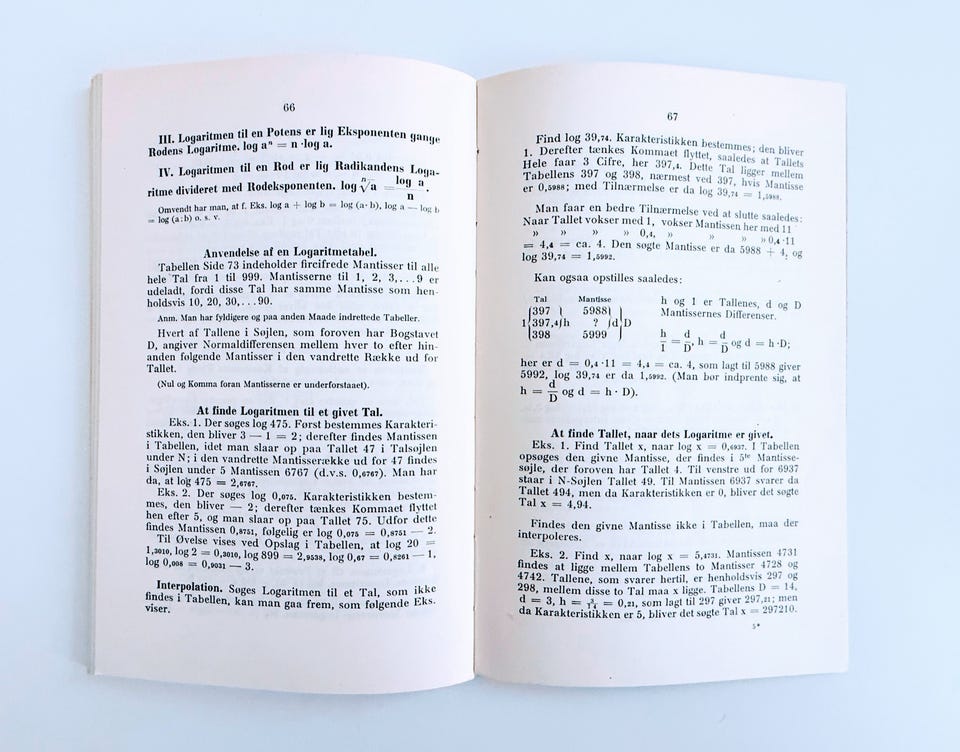 66
III. Logaritmen til en Potens er lig Eksponenten gange
Rodens Logaritme. log aⁿ = n · log a.
IV. Logaritmen til en Rod er lig Radikandens Loga-
ritme divideret med Rodeksponenten. log ⁿ√a = log a / n .
Omvendt har man, at f. Eks. log a + log b = log (a · b), log a — log b
= log (a : b) o. s. v.
Anvendelse af en Logaritmetabel.
Tabellen Side 73 indeholder fircifrede Mantisser til alle
hele Tal fra 1 til 999. Mantisserne til 1, 2, 3,. . .9 er
udeladt, fordi disse Tal har samme Mantisse som hen-
holdsvis 10, 20, 30,. . .90.
Anm. Man har fyldigere og paa anden Maade indrettede Tabeller.
Hvert af Tallene i Søjlen, som foroven har Bogstavet
D, angiver Normaldifferensen mellem hver to efter hin-
anden følgende Mantisser i den vandrette Række ud for
Tallet.
(Nul og Komma foran Mantisserne er underforstaaet).
At finde Logaritmen til et givet Tal.
Eks. 1. Der søges log 475. Først bestemmes Karakteri-
stikken, den bliver 3 — 1 = 2; derefter findes Mantissen
i Tabellen, idet man slaar op paa Tallet 47 i Talsøjlen
under N; i den vandrette Mantisserække ud for 47 findes
i Søjlen under 5 Mantissen 6767 (d.v.s. 0,6767). Man har
da, at log 475 = 2,6767.
Eks. 2. Der søges log 0,075. Karakteristikken bestem-
mes, den bliver — 2; derefter tænkes Kommaet flyttet
hen efter 5, og man slaar op paa Tallet 75. Udfor dette
findes Mantissen 0,8751, følgelig er log 0,075 = 0,8751 — 2.
Til Øvelse vises ved Opslag i Tabellen, at log 20 =
1,3010, log 2 = 0,3010, log 899 = 2,9538, log 0,67 = 0,8261 — 1,
log 0,008 = 0,9031 — 3.
Interpolation. Søges Logaritmen til et Tal, som ikke
findes i Tabellen, kan man gaa frem, som følgende Eks.
viser.
67
Find log 39,74. Karakteristikken bestemmes; den bliver
1. Derefter tænkes Kommaet flyttet, saaledes at Tallets
Hele faar 3 Cifre, her 397,4. Dette Tal ligger mellem
Tabellens 397 og 398, nærmest ved 397, hvis Mantisse
er 0,5988; med Tilnærmelse er da log 39,74 = 1,5988.
Man faar en bedre Tilnærmelse ved at slutte saaledes:
Naar Tallet vokser med 1, vokser Mantissen her med 11
» » » » 0,4, » » » » 0,4·11
= 4,4 = ca. 4. Den søgte Mantisse er da 5988 + 4, og
log 39,74 = 1,5992.
Kan ogsaa opstilles saaledes:
Tal Mantisse
397 } 5988 } h og 1 er Tallenes, d og D
1 { 397,4 } h ? } d } D Mantissernes Differenser.
398 5999 } h/1 = d/D, h = d/D og d = h · D;
her er d = 0,4 · 11 = 4,4 = ca. 4, som lagt til 5988 giver
5992, log 39,74 er da 1,5992. (Man bør indprente sig, at
h = d/D og d = h · D).
At finde Tallet, naar dets Logaritme er givet.
Eks. 1. Find Tallet x, naar log x = 0,6937. I Tabellen
opsøges den givne Mantisse, der findes i 5te Mantisse-
søjle, der foroven har Tallet 4. Til venstre ud for 6937
staar i N-Søjlen Tallet 49. Til Mantissen 6937 svarer da
Tallet 494, men da Karakteristikken er 0, bliver det søgte
Tal x = 4,94.
Findes den givne Mantisse ikke i Tabellen, maa der
interpoleres.
Eks. 2. Find x, naar log x = 5,4731. Mantissen 4731
findes at ligge mellem Tabellens to Mantisser 4728 og
4742. Tallene, som svarer hertil, er henholdsvis 297 og
298, mellem disse to Tal maa x ligge. Tabellens D = 14,
d = 3, h = 3/14 = 0,21, som lagt til 297 giver 297,21; men
da Karakteristikken er 5, bliver det søgte Tal x = 297210.
5*